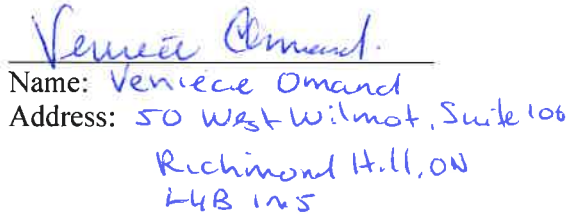 Veniece Omand.
Name: Veniece Omand
Address: 50 West Wilmot, Suite 106
Richmond Hill, ON
L4B 1M5